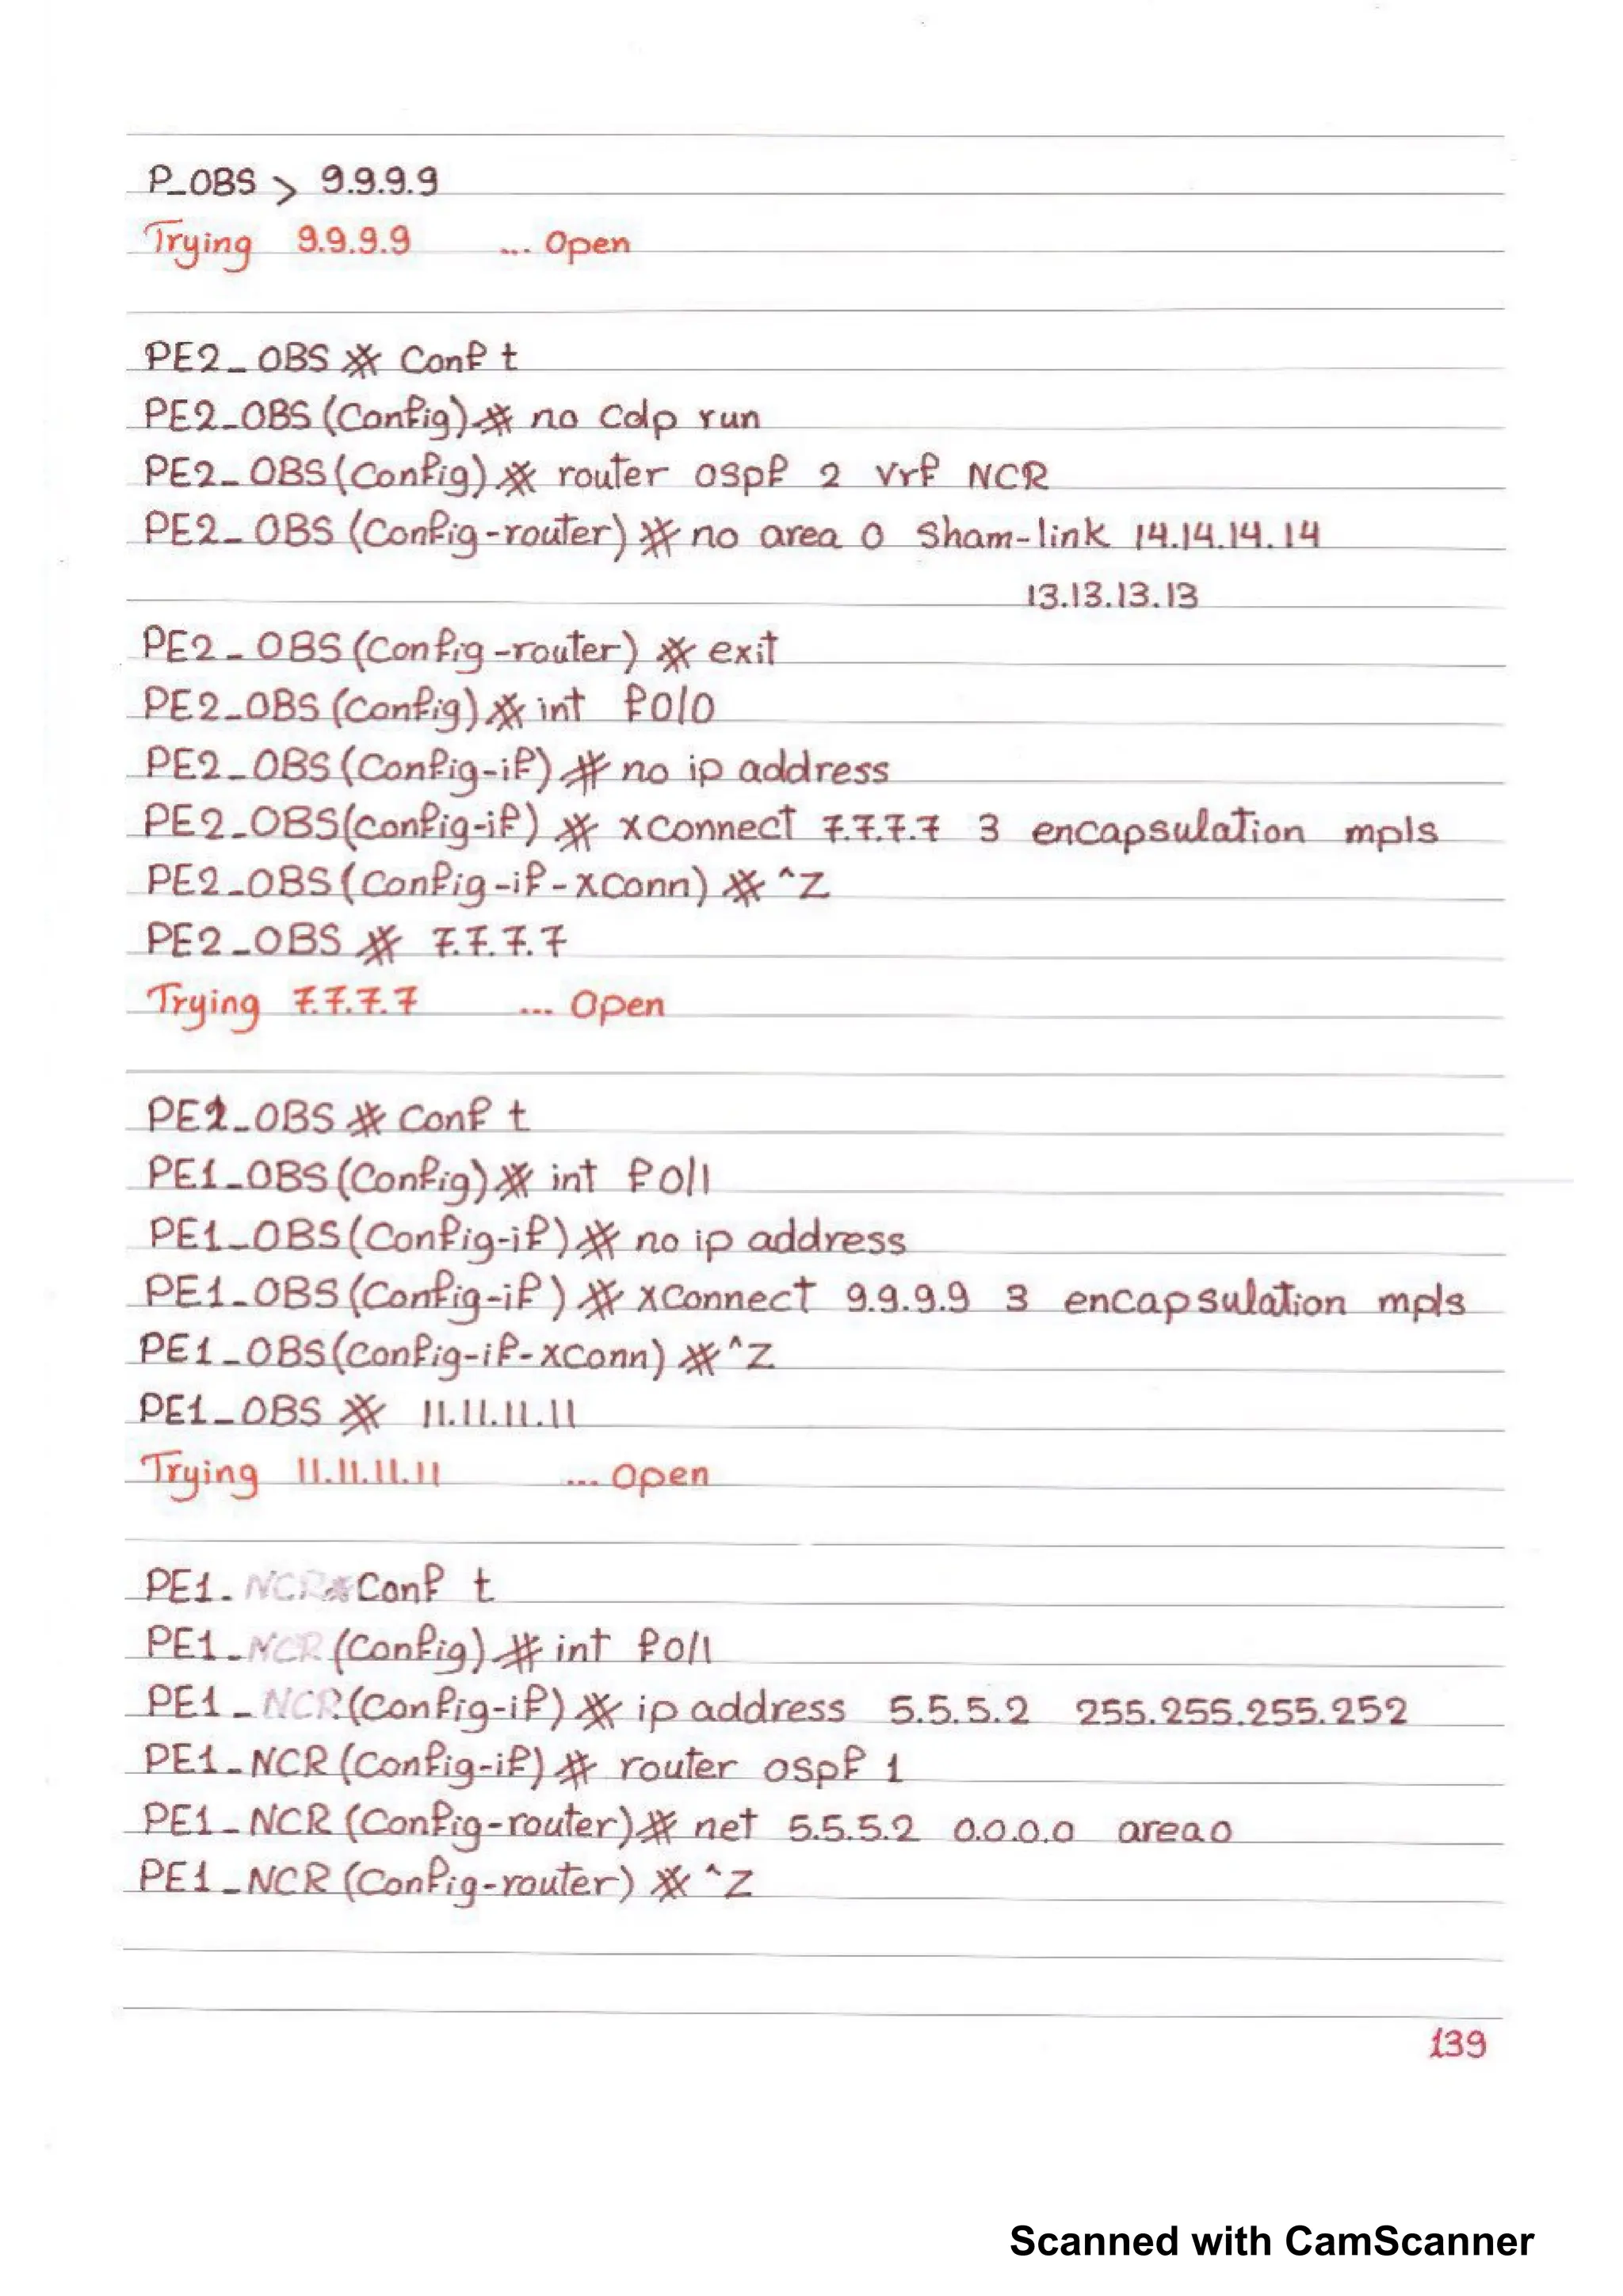 P_OBS > 9.9.9.9
Trying 9.9.9.9 ... Open
PE2_OBS # Conf t
PE2_OBS (Config)# no Cdp run
PE2_OBS (Config)# router ospf 2 vrf NCR
PE2_OBS (Config-router)# no area 0 Sham-link 14.14.14.14
13.13.13.13
PE2_OBS (Config-router)# exit
PE2_OBS (Config)# int f0/0
PE2_OBS (Config-if)# no ip address
PE2_OBS(config-if)# xconnect 7.7.7.7 3 encapsulation mpls
PE2_OBS (Config-if-xconn)# ^Z
PE2_OBS # 7.7.7.7
Trying 7.7.7.7 ... Open
PE1_OBS # Conf t
PE1_OBS (Config)# int f0/1
PE1_OBS (Config-if)# no ip address
PE1_OBS (Config-if)# xConnect 9.9.9.9 3 encapsulation mpls
PE1_OBS (config-if-xConn)# ^Z
PE1_OBS # 11.11.11.11
Trying 11.11.11.11 ... Open
PE1_NCR# Conf t
PE1_NCR (Config)# int f0/1
PE1_NCR (Config-if)# ip address 5.5.5.2 255.255.255.252
PE1_NCR (Config-if)# router ospf 1
PE1_NCR (Config-router)# net 5.5.5.2 0.0.0.0 area0
PE1_NCR (Config-router)# ^Z
139
Scanned with CamScanner